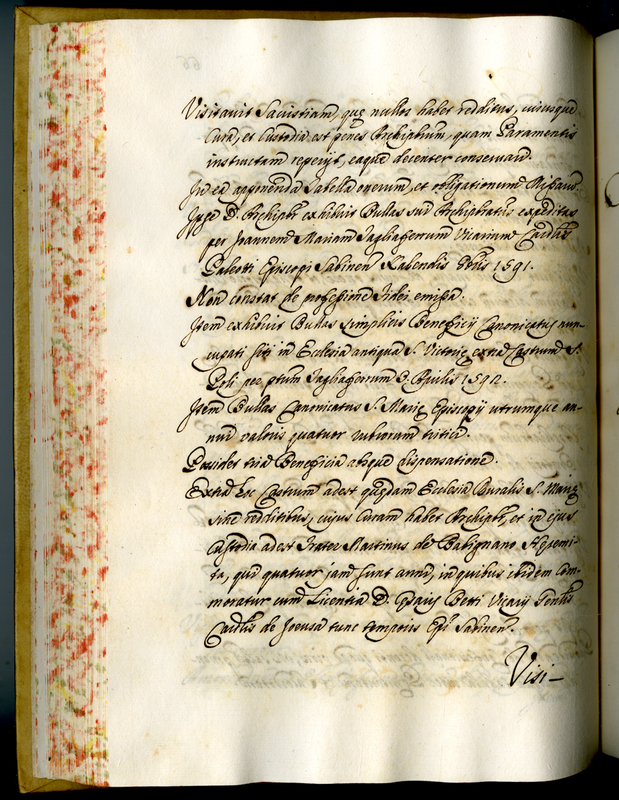 Visitavit Sacristiam, quę nullos habet redditus, cuiusque
Cura, et Custodia est penes Archiptrum, quam Paramentis
instructam reperijt, eaque decenter conservari.
In ea appinenda Tabella onerum, et obligationum Missarum.
Ipse D. Archipbr exhibuit Bullas sui Archipbratus expeditas
per Joannem Mariam Tagliaferrum Vicarium Cardlis
Paleotti Episcopi Sabinen Kalendis 1591.
Non constat de professione Fidei emissa.
Item exhibuit Bullas simplicis Beneficij Canonicatus nun-
cupati siti in Ecclesia antiqua S. Victorię extra Castrum S.
Poli per ptum Tagliaferrum 3. Aprilis 1592.
Item Bullas Canonicatus S. Marię Episcopij utrumque an-
nui valoris quatuor rubiorum tritici.
Possidet tria Beneficia absque dispensatione.
Extra hoc Castrum adest quędam Ecclesia Ruralis S. Marię
sine redditibus, cujus Curam habet Archipbr, et in ejus
Custodia adest Frater Martinus de Babignano Heremi-
ta, qui quatuor jam sunt anni, in quibus ibidem Com-
moratur cum Licentia D. Betti Vicarij Genlis
Cardlis de Joeusa tunc temporis Epi Sabinen.
Visi-